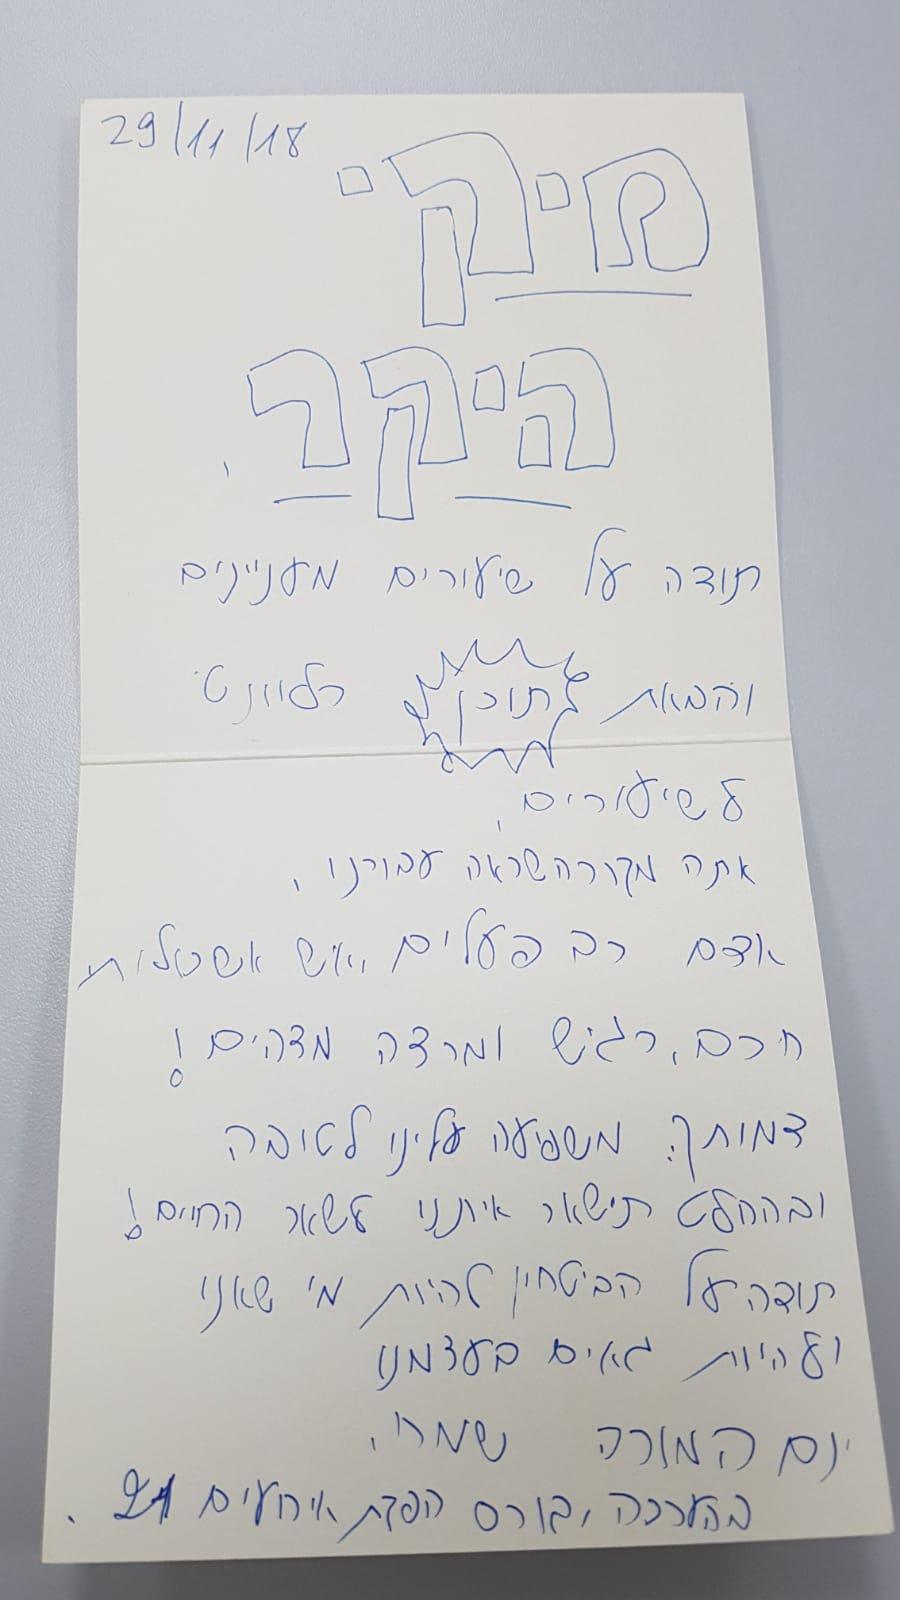 29/11/18
מיקי
היקר,
תודה על שיעורים מעניינים
והבאת תוכן רלוונטי
לשיעורים,
אתה מקור השראה עבורנו,
אדם רב פעלים, איש אשכולות
חכם, רגיש ומרצה מדהים!
דמותך משפיעה עלינו לטובה
ובהחלט תישאר איתנו לשאר החיים!
תודה על הביטחון להיות מי שאנו
ולהיות גאים בעצמנו
יום המורה שמח,
בהערכה, קורס הפקת אירועים 21.